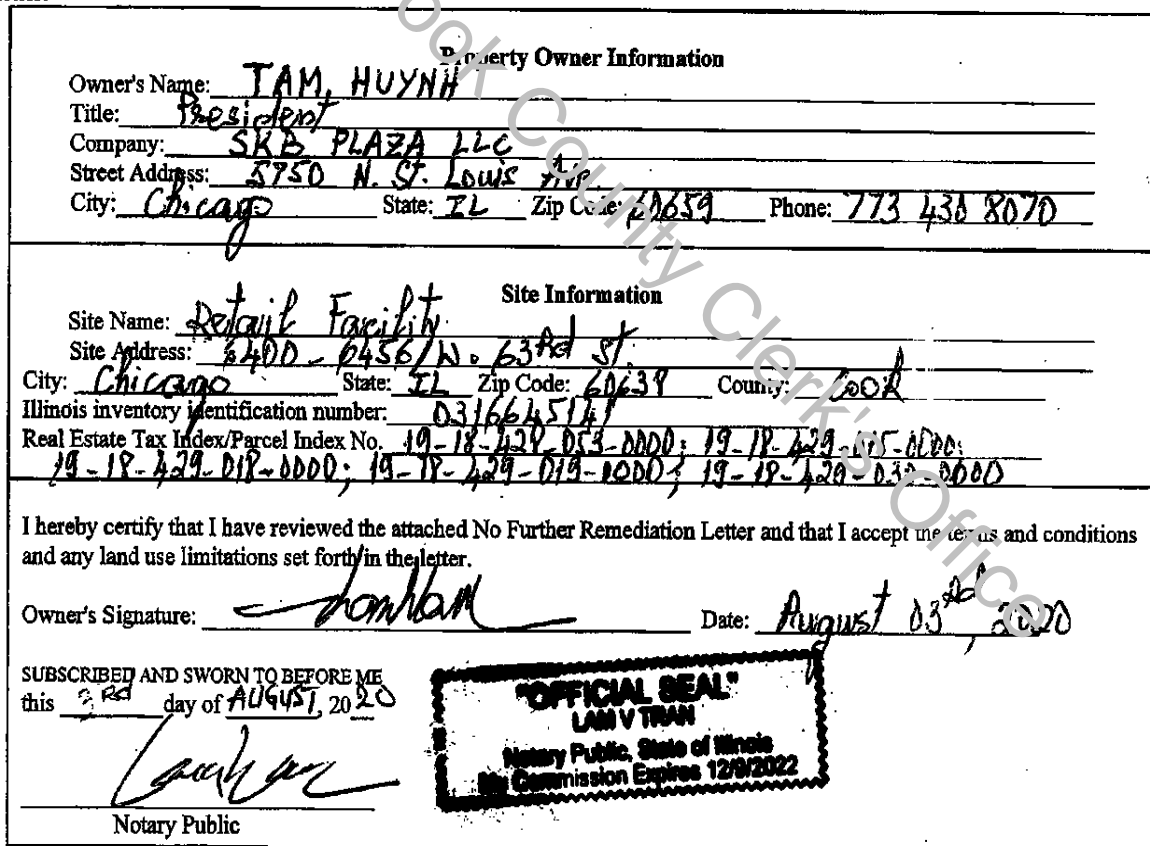 Property Owner Information
Owner's Name: TAM, HUYNH
Title: President
Company: SKB PLAZA LLC
Street Address: 5750 N. St. Louis Ave.
City: Chicago State: IL Zip Code: 60659 Phone: 773 430 8070
Site Information
Site Name: Retail Facility
Site Address: 6400 - 6456 W. 63Rd St.
City: Chicago State: IL Zip Code: 60638 County: Cook
Illinois inventory identification number: 0316645141
Real Estate Tax Index/Parcel Index No. 19-18-428-053-0000; 19-18-429-015-0000;
19-18-429-018-0000; 19-18-429-019-0000; 19-18-429-030-0000
I hereby certify that I have reviewed the attached No Further Remediation Letter and that I accept the terms and conditions
and any land use limitations set forth in the letter.
Owner's Signature: Date: August 03rd, 2020
SUBSCRIBED AND SWORN TO BEFORE ME
this 3Rd day of AUGUST, 2020
"OFFICIAL SEAL"
LAM V TRAN
Notary Public, State of Illinois
My Commission Expires 12/9/2022
Notary Public
Cook County Clerk's Office